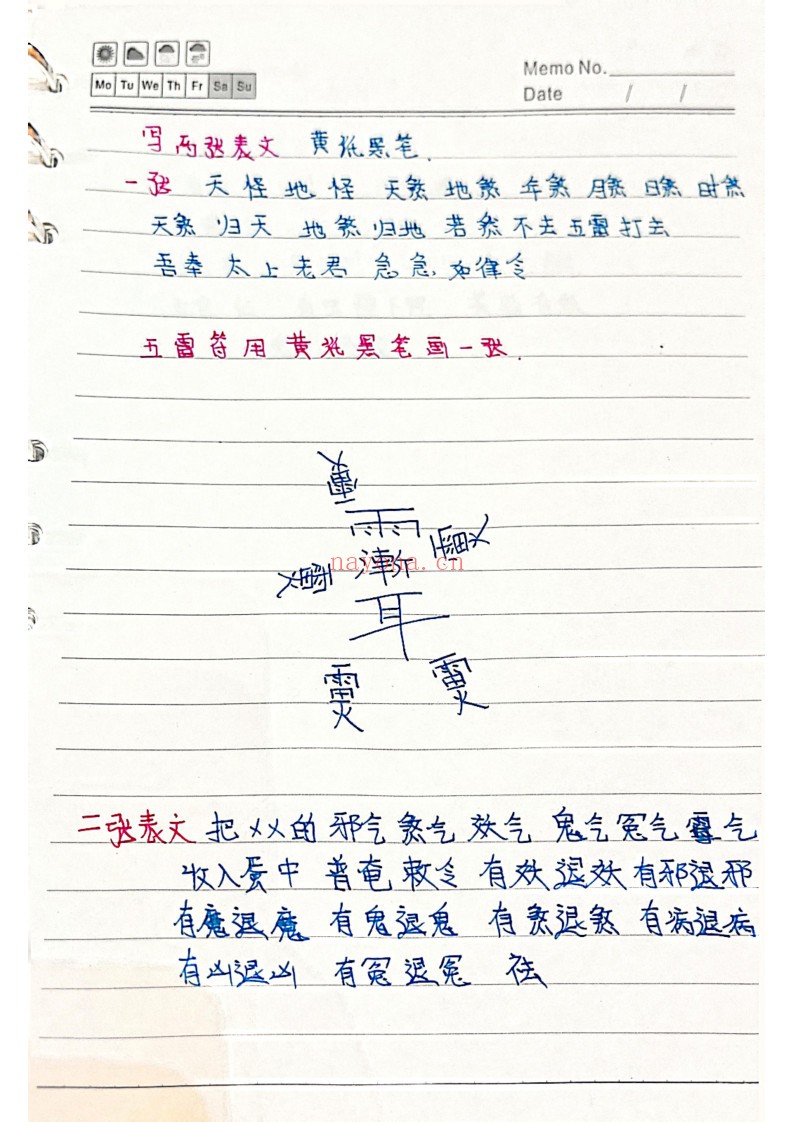 Memo No.
Mo Tu We Th Fr Sa Su
Date / /
写两张表文 黄纸黑笔.
一张 天怪地怪 天煞地煞 年煞 月煞 日煞 时煞
天煞归天 地煞归地 若然不去五雷打去
吾奉太上老君急急如律令
五雷符用黄纸黑笔画一张.
雨
渐
耳
nayona.cn
二张表文 把××的邪气煞气 效气 鬼气冤气 气
收入蛋中 普奄敕令 有效退效有邪退邪
有魔退魔 有鬼退鬼 有煞退煞 有病退病
有凶退凶 有冤退冤